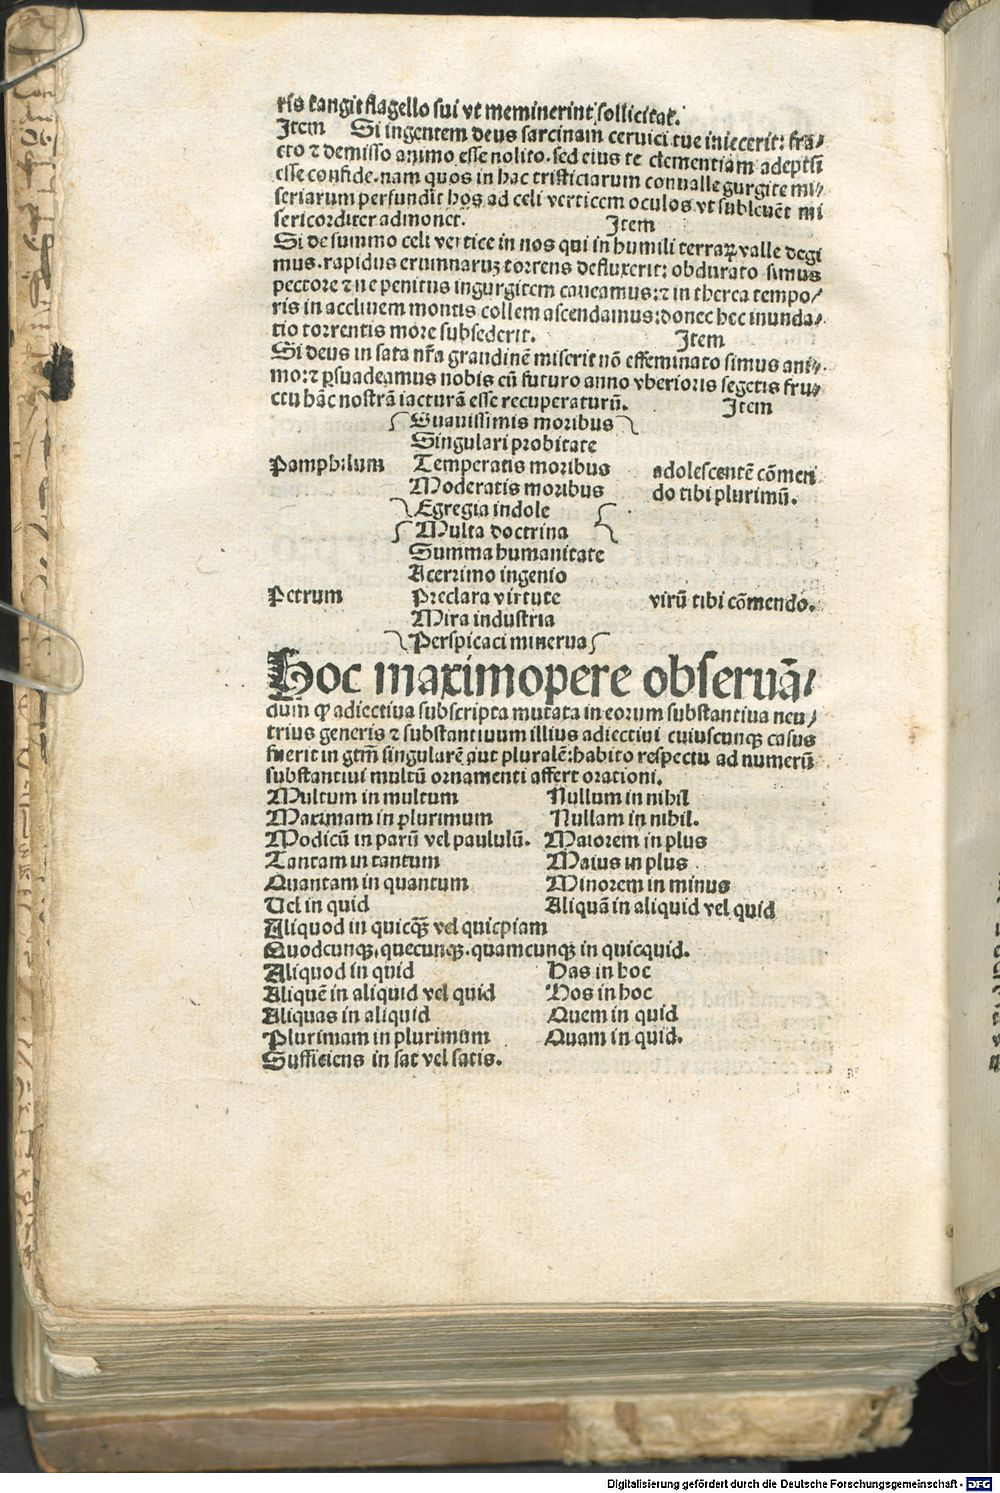 ris tangit flagello sui vt meminerint sollicitat.
Item Si ingentem deus sarcinam ceruici tue iniecerit: fra⸗
cto ⁊ demisso animo esse nolito. sed eius te clementiam adeptũ
esse confide. nam quos in hac tristiciarum conualle gurgite mi⸗
seriarum perfundit hos ad celi verticem oculos vt subleuẽt mi
sericorditer admonet. Item
Si de summo celi vertice in nos qui in humili terraꝝ valle degi
mus. rapidus erumnaruꝫ torrens defluxerit: obdurato simus
pectore ⁊ ne penitus ingurgitem caueamus: ⁊ in therea tempo⸗
ris in accliuem montis collem ascendamus: donec hec inunda⸗
tio torrentis more subsederit. Item
Si deus in sata nr̃a grandinẽ miserit nõ effeminato simus ani⸗
mo: ⁊ ꝑsuadeamus nobis cũ futuro anno vberioris segetis fru⸗
ctu hãc nostrã iacturã esse recuperaturũ. Item
Suauissimis moribus
Singulari probitate
Pamphilum Temperatis moribus adolescentẽ cõmen
Moderatis moribus do tibi plurimũ.
Egregia indole
Multa doctrina
Summa humanitate
Acerrimo ingenio
Petrum Preclara virtute virũ tibi cõmendo.
Mira industria
Perspicaci minerua
Hoc maximopere obseruã⸗
dum ꝙ adiectiua subscripta mutata in eorum substantiua neu⸗
trius generis ⁊ substantiuum illius adiectiui cuiuscunqꝫ casus
fuerit in gtm̃ singularẽ aut pluralẽ: habito respectu ad numerũ
substantiui multũ ornamenti affert orationi.
Multum in multum Nullum in nihil
Maximam in plurimum Nullam in nihil.
Modicũ in parũ vel paululũ. Maiorem in plus
Tantam in tantum Maius in plus
Quantam in quantum Minorem in minus
Vel in quid Aliquã in aliquid vel quid
Aliquod in quicqꝫ vel quicpiam
Quodcunqꝫ, quecunqꝫ. quamcunqꝫ in quicquid.
Aliquod in quid Has in hoc
Aliquẽ in aliquid vel quid Hos in hoc
Aliquas in aliquid Quem in quid
Plurimam in plurimum Quam in quid.
Sufficiens in sat vel satis.
Digitalisierung gefördert durch die Deutsche Forschungsgemeinschaft - DFG